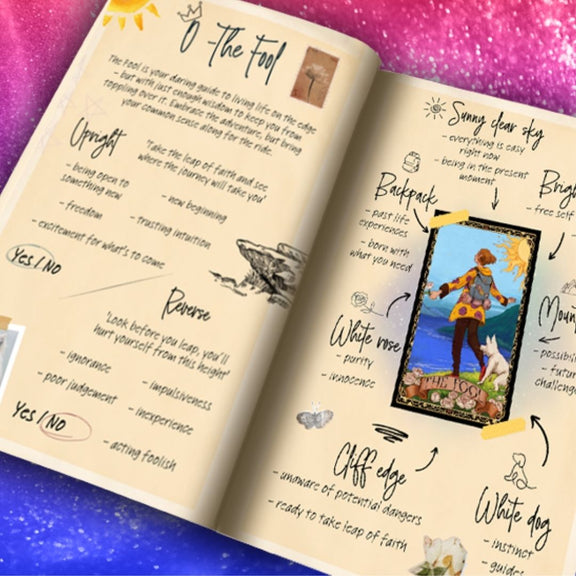 0 - The Fool
The Fool is your daring guide to living life on the edge
- but with just enough wisdom to keep you from
toppling over it. Embrace the adventure, but bring
your common sense along for the ride.
Upright
'Take the leap of faith and see
where the journey will take you'
- being open to
something new
- new beginning
- freedom
- trusting intuition
- excitement for what's to come
Yes / No
Reverse
'Look before you leap, you'll
hurt yourself from this height'
- ignorance
- impulsiveness
- poor judgement
- inexperience
Yes / No
- acting foolish
Sunny clear sky
- everything is easy
right now
- being in the present
moment
Backpack
- past life
experiences
- born with
what you need
- free self
White rose
- purity
- innocence
THE FOOL
- possibili
- futur
challenge
Cliff edge
- unaware of potential dangers
- ready to take leap of faith
White dog
- instinct
- guides